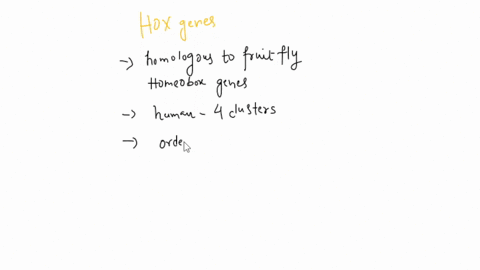 Hox genes
→ homologous to fruit fly
Homeobox genes
→ human - 4 clusters
→ orde